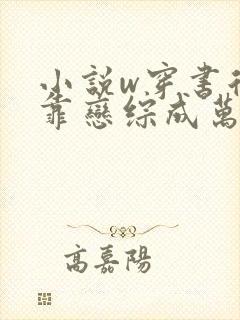 小說w穿書後
靠戀綜成萬
高嘉陽